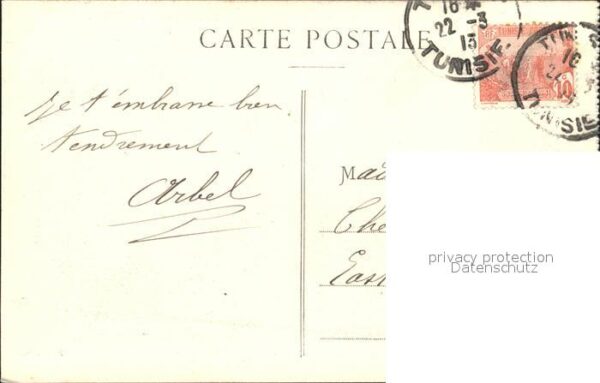 CARTE POSTALE
16 4
22 -3
13
TUNISIE
TUNISIE
10
je t'embrasse bien
tendrement
Arbel
Mad
Che
East
privacy protection
Datenschutz